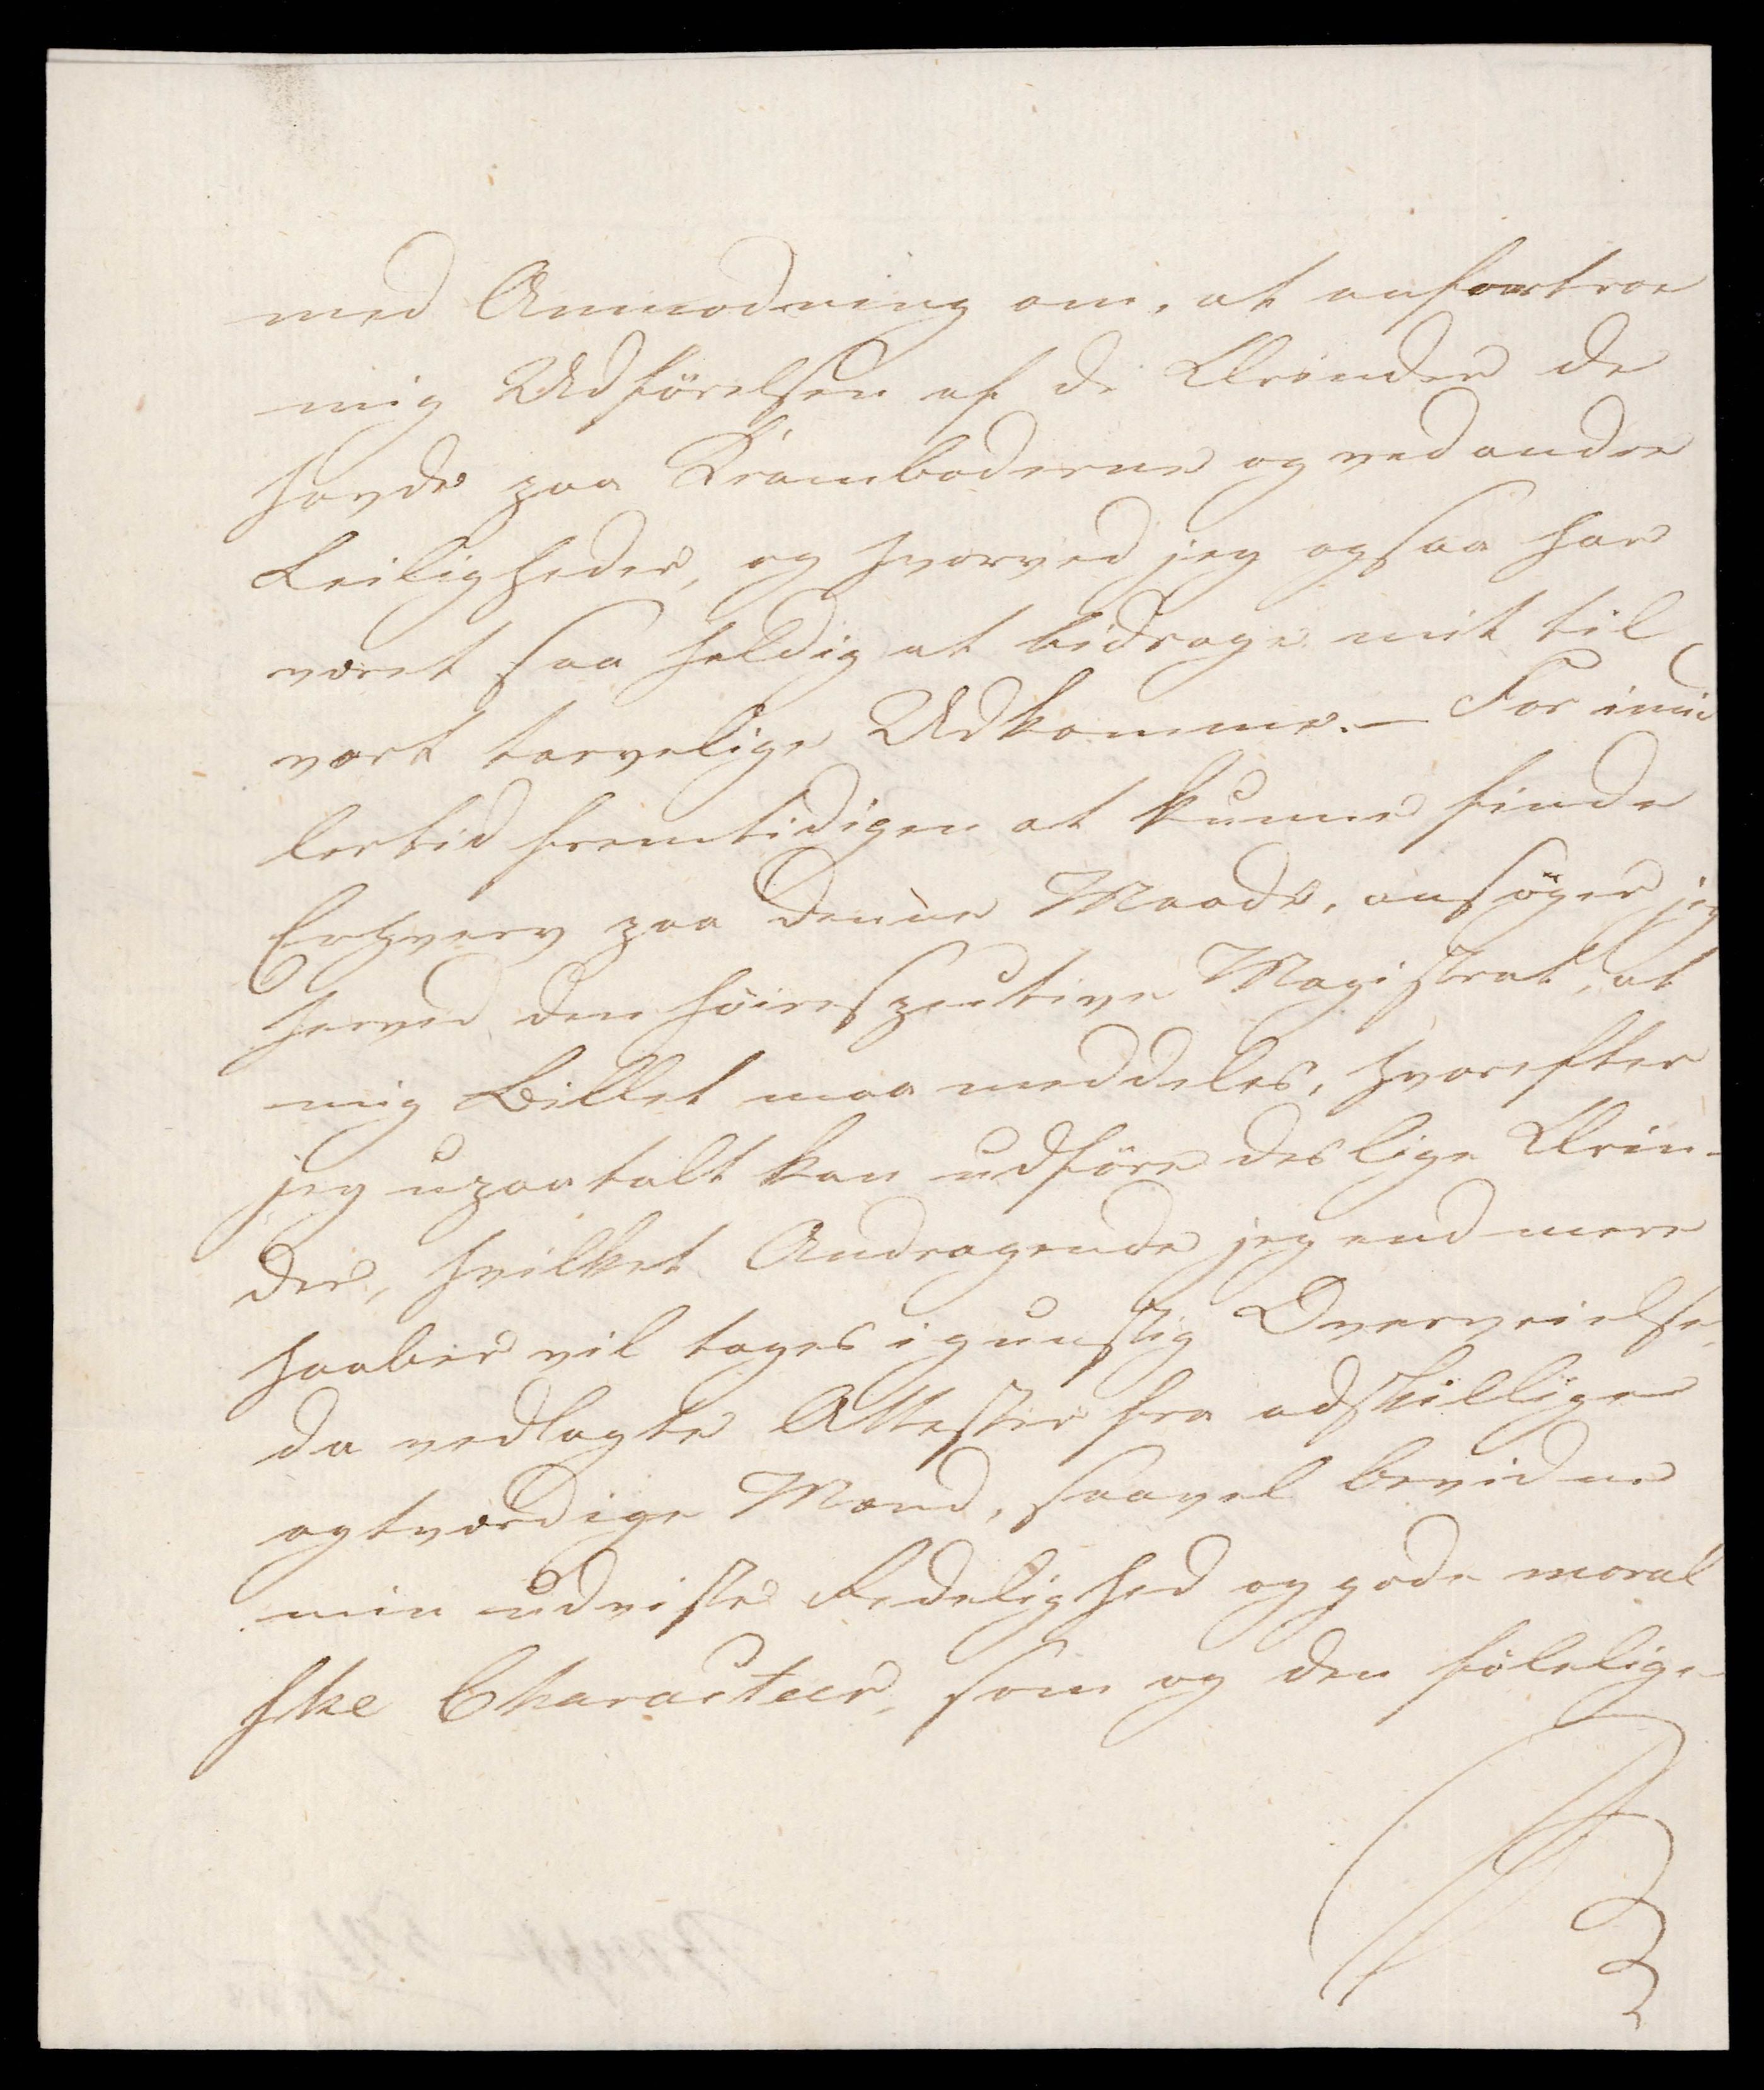 med Anmodning om, at anfortroe
mig Udförelsen af de Ærinder de
havde paa Kramboderne og ved andre
Leiligheder, og hvorved jeg ogsaa har
været saa heldig at bidrage mit til
vort tarvelige Udkomme. – For imid
lertid fremtidigen at kunne finde
Erhverv paa denne Maade, ansøger jeg
herved den høirespective Magistrat, at
mig Billet maa meddeles, hvorefter
jeg upaatalt kan udföre deslige Ærin-
der, hvilket Andragende jeg end mere
haaber vil tages i gunstig Overveielse,
da vedlagte Attester fra adskillige
agtværdige Mænd, saavel bevidne
min udviste Redelighed og gode moral
ske Characteer, som og den fölelige